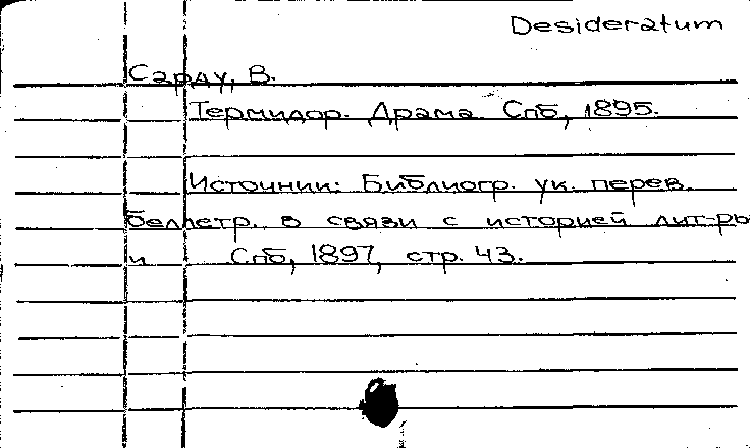 Desideratum
Сарду, В.
Термидор. Драма. Спб, 1895.
Источник: Библиогр. ук. перев.
беллетр. в связи с историей лит-ры
и Спб, 1897, стр. 43.